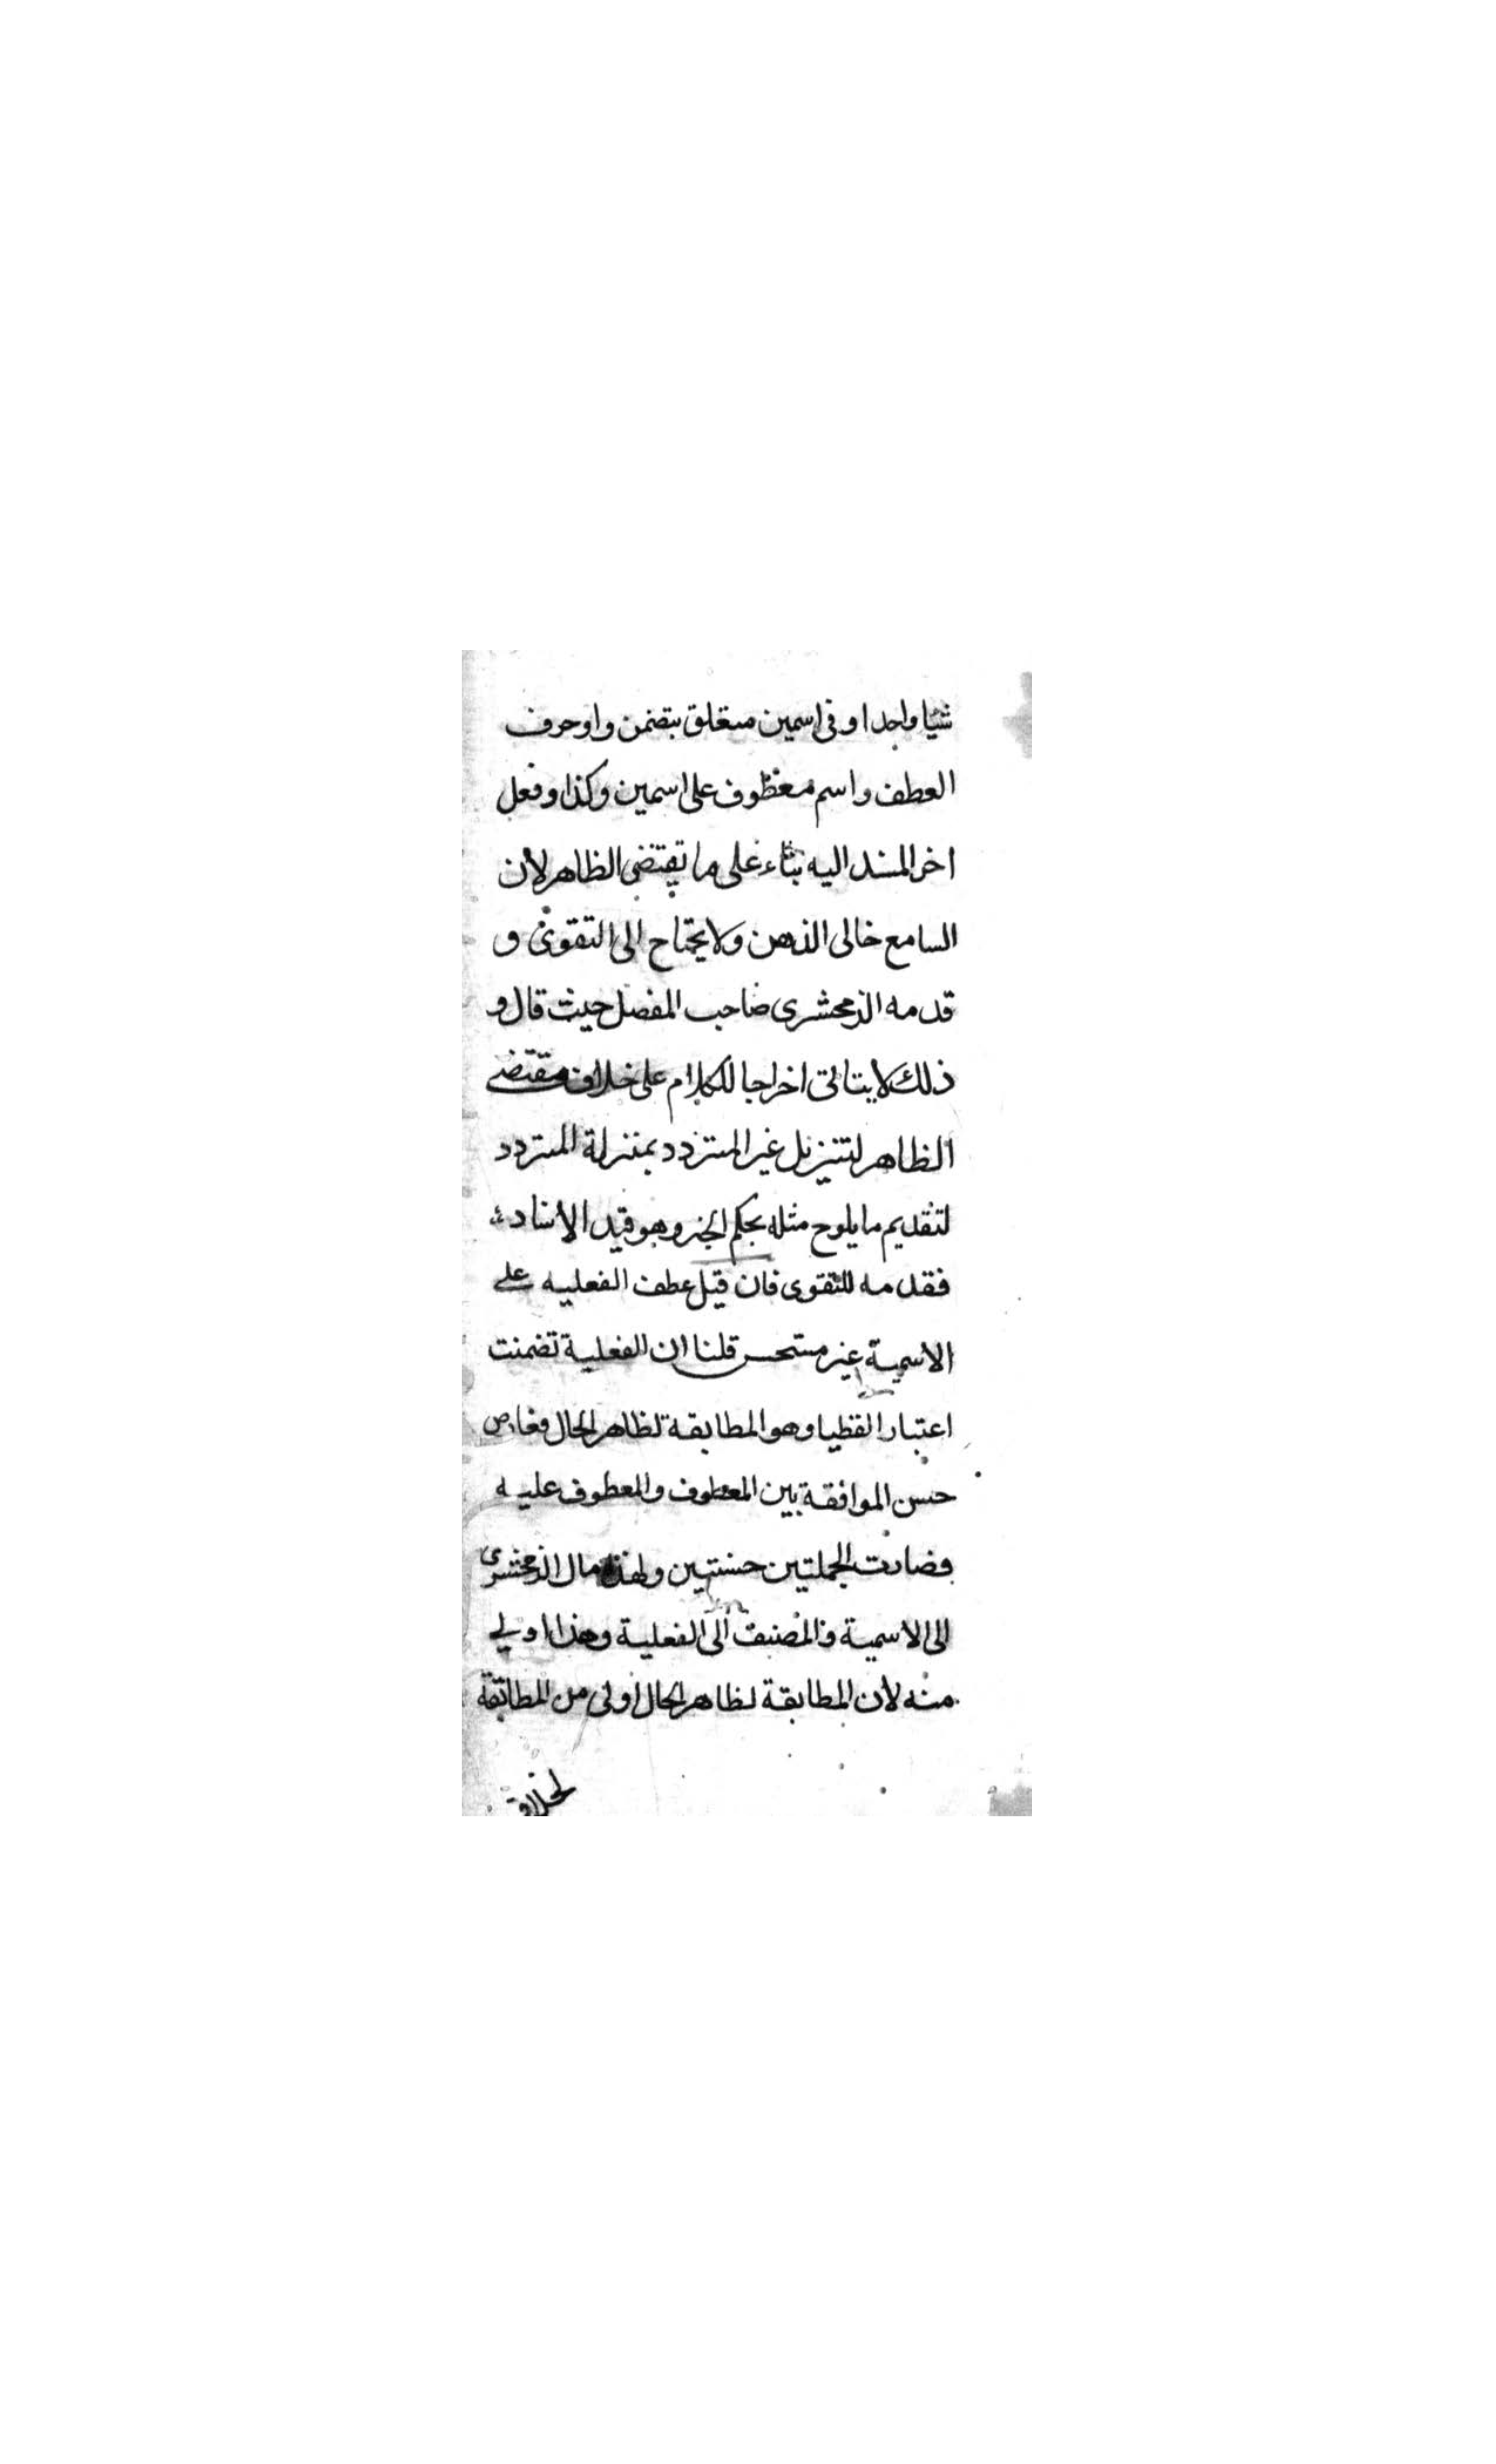 شيا واحدا وفى اسمين متعلق بتضمن واو حرف
العطف واسم معطوف على اسمين وكذا وفعل
اخر المسند اليه بناء على ما تقتضى الظاهر لأن
السامع خالى الذهن ولا يحتاج الى التقوى و
قدمه الزمخشرى صاحب المفصل حيث قال و
ذلك لا يتاتى اخراجا للكلام على خلاف مقتضى
الظاهر لتنزيل غير المتردد بمنزلة المتردد
لتقديم ما يلوح مثله بحكم الخبر وهو قيد الأسناد
فقدمه للتقوى فان قيل عطف الفعليه على
الاسمية غير مستحسن قلنا ان الفعلية تضمنت
اعتبارا لفظيا وهو المطابقة لظاهر الحال فعارض
حسن الموافقة بين المعطوف والمعطوف عليه
فصارت الجملتين حسنتين ولهذا مال الزمخشرى
الى الاسمية والمصنف الى الفعلية وهذا اولى
منه لأن المطابقة لظاهر الحال اولى من المطابقة
لخلاف